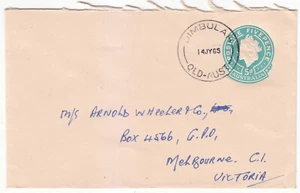 JIMBOUR
14JY65
QLD-AUST
POSTAGE FIVEPENCE
5D
AUSTRALIA
M/S ARNOLD WHEELER & CO.,
BOX 4566, G.P.O,
MELBOURNE. C.1.
VICTORIA